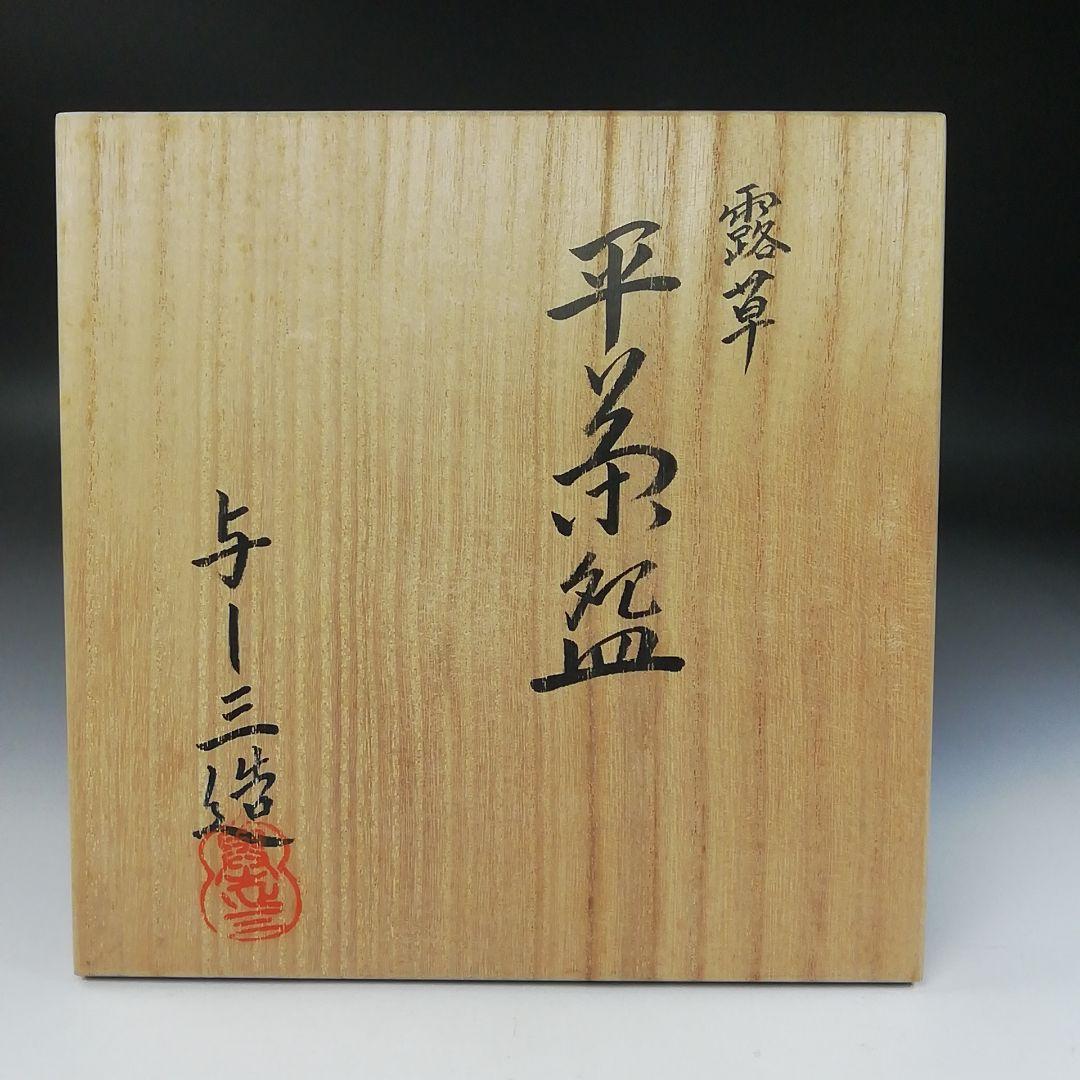 露草
平茶盌
与し三造